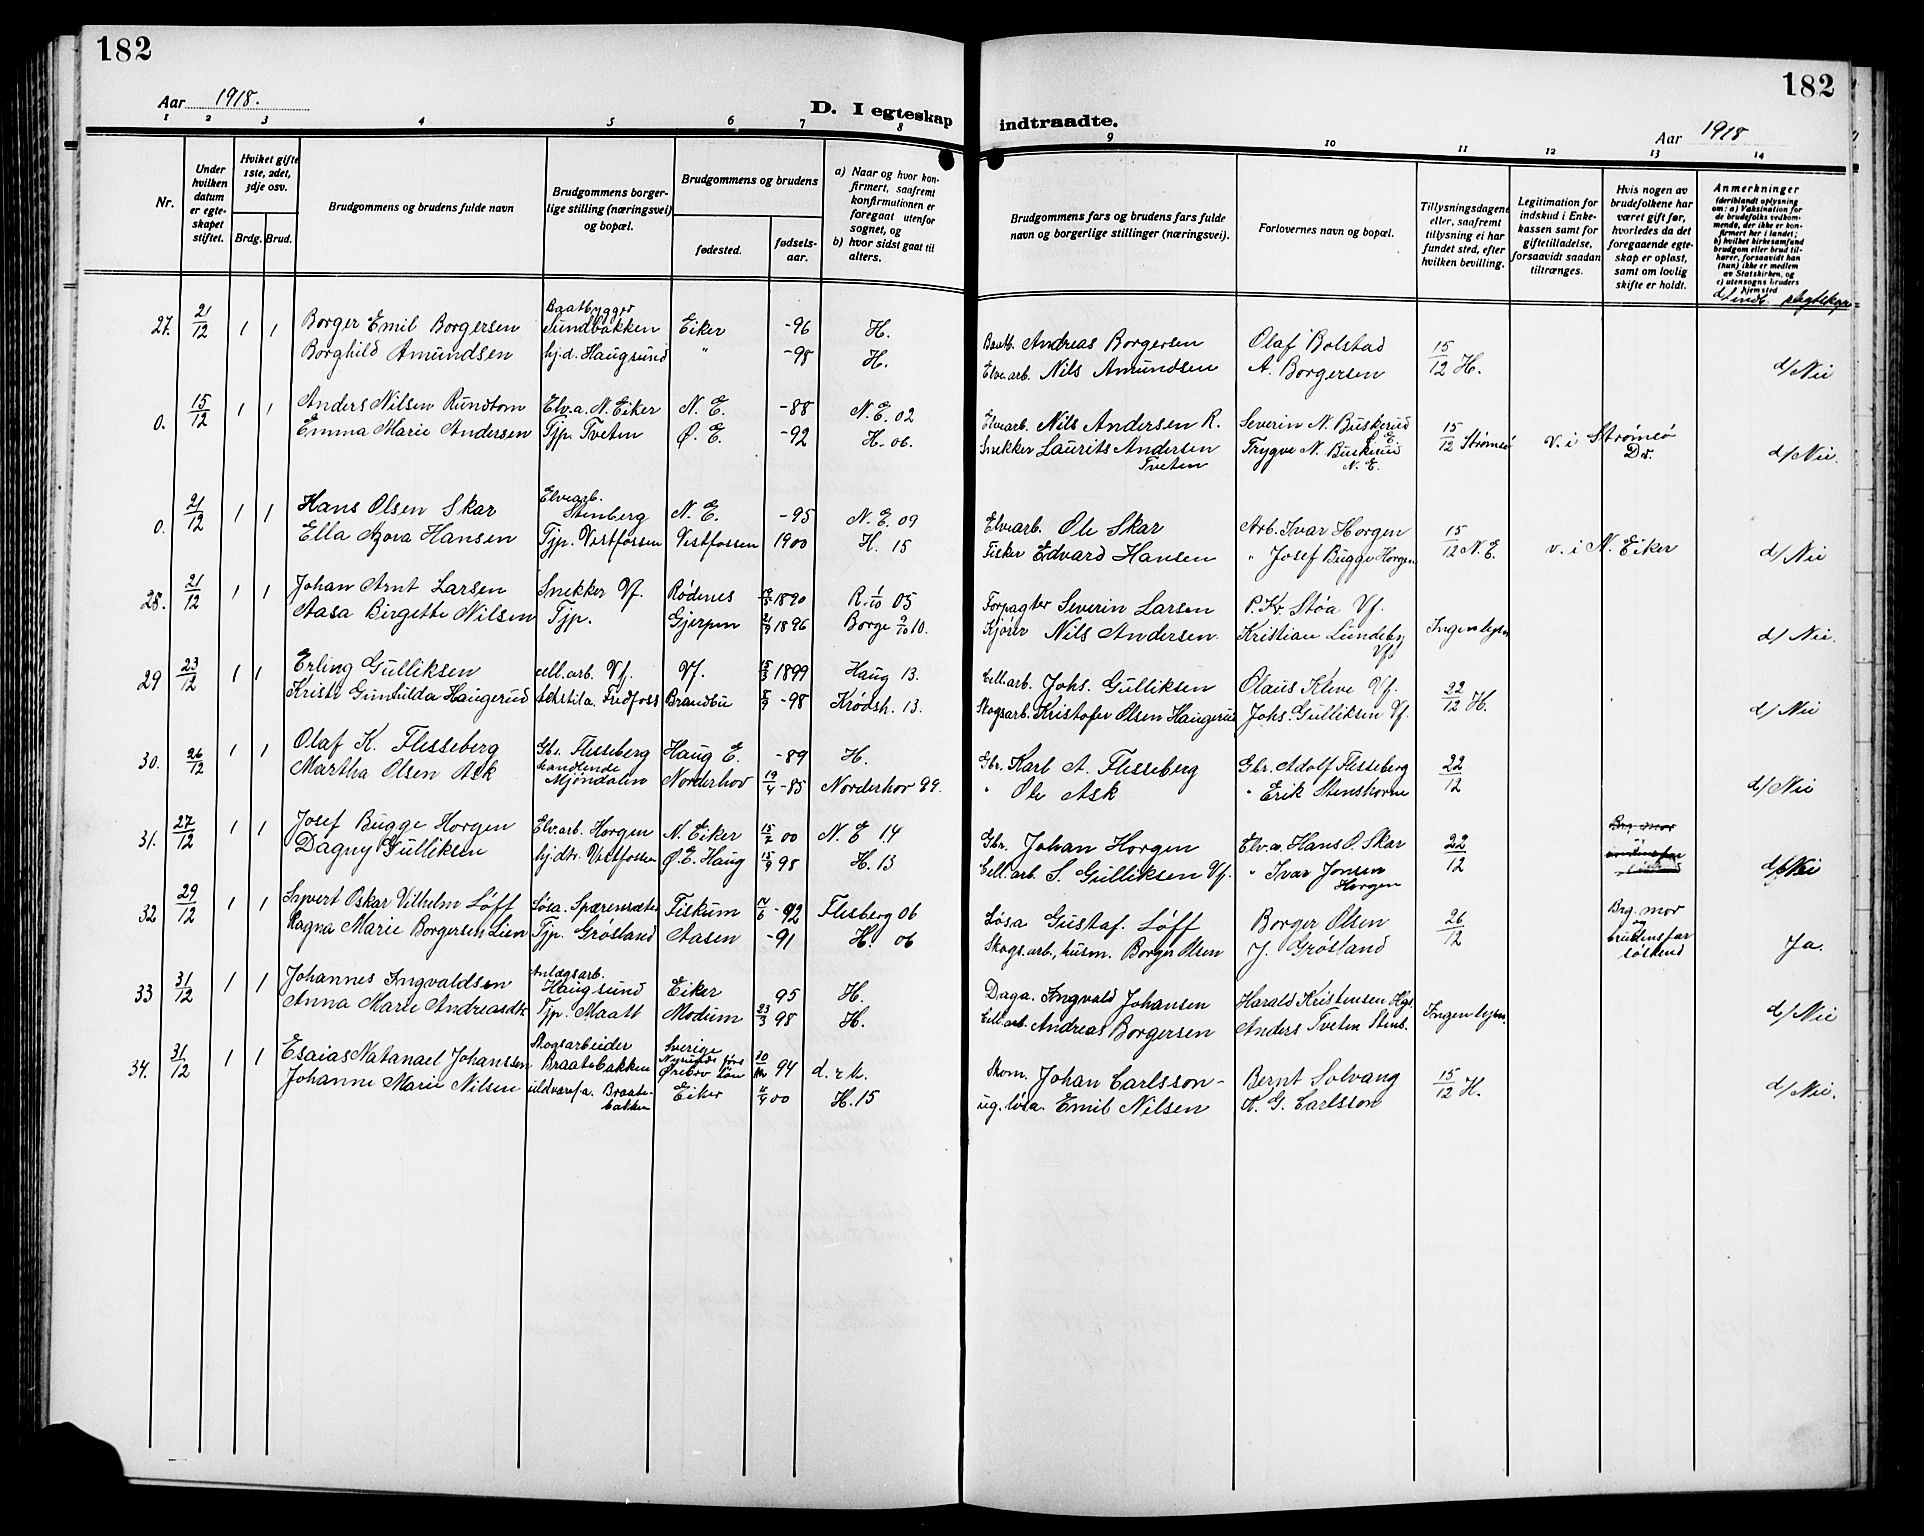 182
182
Aar 1918.
D. I egteskap indtraadte.
Aar 1918
1 2 3 4 5 6 7 8 9 10 11 12 13 14
Nr.
Under hvilken datum er egteskapet stiftet.
Hviket gifte 1ste, 2det, 3dje osv.
Brdg. Brud.
Brudgommens og brudens fulde navn
Brudgommens borgerlige stilling (næringsvei) og bopæl.
Brudgommens og brudens
fødested. fødsels-aar.
a) Naar og hvor konfirmert, saafremt konfirmationen er foregaat utenfor sognet, og
b) hvor sidst gaat til alters.
Brudgommens fars og brudens fars fulde navn og borgerlige stillinger (næringsvei).
Forlovernes navn og bopæl.
Tillysningsdagene eller, saafremt tillysning ei har fundet sted, efter hvilken bevilling.
Legitimation for indskud i Enkekassen samt for giftetilladelse, forsaavidt saadan tiltrænges.
Hvis nogen av brudefolkene har været gift før, hvorledes da det foregaaende egteskap er opløst, samt om lovlig skifte er holdt.
Anmerkninger (deriblandt oplysning om: a) Vaksination for de brudefolks vedkommende, der ikke er konfirmert her i landet; b) hvilket kirkesamfund brudgom eller brud tilhører, forsaavidt han (hun) ikke er medlem av Statskirken, og c) utensogns bruders hjemsted
27. 21/12 1 1 Borger Emil Borgersen Baatbygger Sundbakken Eiker -96 H. Baatb. Andreas Borgersen Olaf Bolstad 15/12 H.
Borghild Amundsen hj.d. Haugsund " -98 H. Elve.arb. Nils Amundsen A. Borgersen d/ Nei
0. 15/12 1 1 Anders Nilsen Rundtom Elv.a. N. Eiker N. E. -88 N. E. 02 Elvearb. Nils Andersen R. Severin N. Buskerud 15/12 Strømsø v. i Strømsø Dr.
Emma Marie Andersen Tjp. Tveten Ø. E. -92 H. 06. Snekker Laurits Andersen Tveten Trygve N. Buskerud N. E. d/ Nei.
0. 21/12 1 1 Hans Olsen Skar Elvearb. Stenberg N. E. -95 N. E. 09 Elvearb. Ole Skar Arb. Ivar Horgen 15/12 N. E. v. i N. Eiker
Ella Hansen Tjp. Vestfossen Vestfossen 1900 H. 15 Fisker Edvard Hansen " Josef Bugge Horgen d/ Nei
28. 21/12 1 1 Johan Arnt Larsen Snekker Vf. Rødenes 1890 R. 1/10 05 Forpagter Severin Larsen P. Kr. Støa Vf.
Aasa Birgette Nilsen Tjp. Gjerpen 21/9 1896 Borge 9/10 10. Kjører Nils Andersen Kristian Lundeby Vfs Ingen lysn d/ Nei.
29 23/12 1 1 Erling Gulliksen cell.arb. Vf. Vf. 15/3 1899 Haug 13. Cell.arb. Johs. Gulliksen Olaus Kleve Vf. 22/12 H.
Kristi Gunhilda Haugerud Fridfoss Brandbu -98 Krødsh. 13. Skogsarb. Kristofer Olsen Haugerud Johs. Gulliksen Vf. d/ Nei
30. 26/12 1 1 Olaf K. Flesseberg Gbr. Flesseberg Haug E. -89 H. Gbr. Karl A. Flesseberg Gbr. Adolf Flesseberg 22/12
Martha Olsen Ask handlende Mjøndalen Norderhov 19/4 -85 Norderhov 99. " Ole Ask " Erik Stenshorne d/ Nei
31. 27/12 1 1 Josef Bugge Horgen Elv.arb. Horgen N. Eiker 15/2 00 N. E 14. Gbr. Johan Horgen Elv.a. Hans O. Skar 22/12 Brg. mor
Dagny Gulliksen hj.dtr. Vestfossen Ø. E. Haug 15/9 98 H. 13 Cell.arb. S. Gulliksen Vf. " Ivar Jonsen Horgen d/ Nei
32 29/12 1 1 Sigvert Oskar Vilhelm Løff Løsa. Spærensæter Fiskum 14/6 -92 Flesberg 06 Løs.a Gustaf. Løff Borger Olsen 26/12 Brg. mor og brudens far søskend
Ragna Marie Borgersen Lien Tjp. Grøsland Aasen -91 H. 06 Skogs.arb., husm. Borger Olsen J. Grøsland Ja.
33 31/12 1 1 Johannes Ingvaldsen Anlægsarb. Haugsund Eiker 95 H. Daga. Ingvald Johansen Harald Kristensen Hgs. Ingen lysn.
Anna Marie Andreasdtr Tjp. Maatt Modum 23/3 98 H. Cell.arb. Andreas Borgersen Anders Tveten Stens. d/ Nei
34. 31/12 1 1 Esaias Natanael Johansson Skogsarbeider Braatebakken Sverige Ørebro län 94 d. r k. Skom. Johan Carlsson - Bernt Solvang 15/12 H.
Johanne Marie Nilsen uldvaref.a. Braatebakken Eiker 4/4 00 H. 15 ug. løsa. Emil Nilsen K. G. Carlsson d/ Nei.